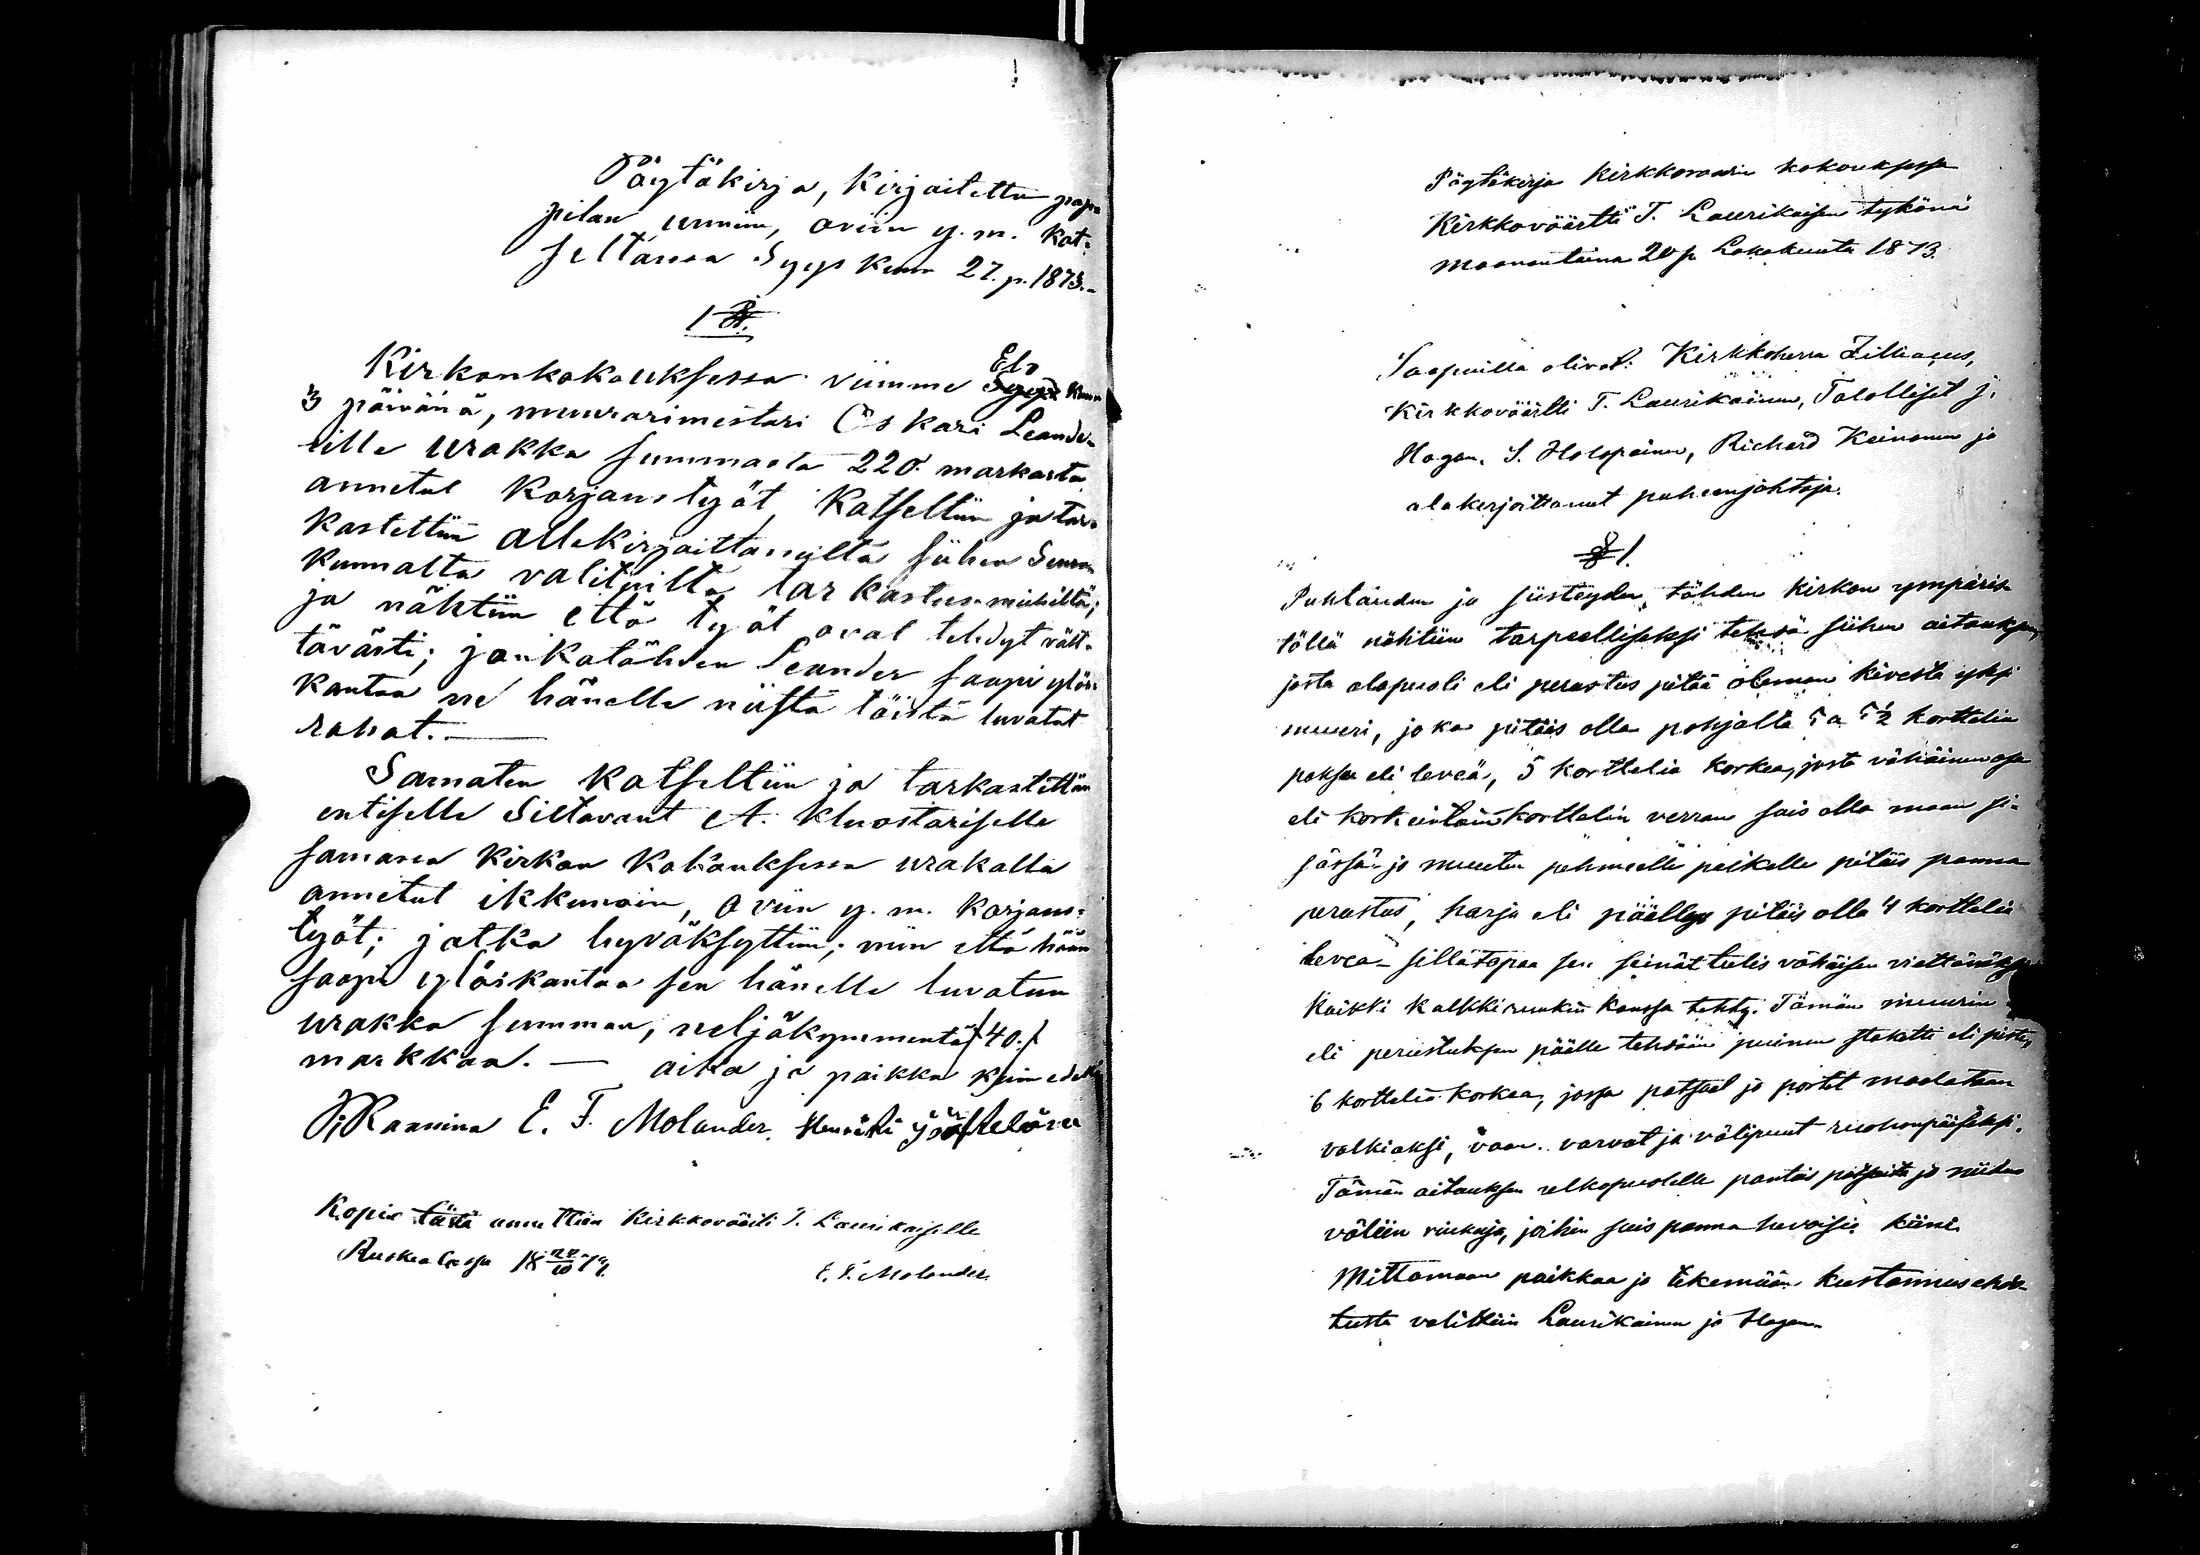 Pöytäkirja, Kirjoitettu pap-
pilan uuniin, oviin y. m. kat-
seltaissa Syys kuun 27. p. 1873.-
1 §.
Kirkonkokouksessa viimme Elo Syys kuun
3 päivänä, muurarimestari Oskari Leande-
rille urakka summasta 220. markasta
annetut Korjaustyöt, Katseltiin ja tar-
kastettiin allekirjoittaneilta siihen Seura-
kunnalta valituilta tarkastus miehiltä;
ja nähtiin että työt ovat tehdyt vält-
tävästi; jonkatähden Leander saapi ylös-
kantaa ne hänelle niistä töistä luvatut
rahat. —
Samaten Katseltiin ja tarkastettiin
entiselle Siltavout A. Kluostariselle
samassa Kirkon Kokouksessa urakalla
annetut ikkunain, Oviin y. m. Korjaus-
työt; jotka hyväksyttiin; niin että hään
saapi ylöskantaa sen hänelle luvatun
urakka summan, neljäkymmentä /40./
markkaa. — aika ja paikka kuin edellä
P. Rannina E. F. Molander. Henriki
Kopia tästä annettiin Kirkkoväärti T. Laurikaiselle
Ruskealassa 18 20/10 73.
E. F. Molander.
Pöytäkirja Kirkkoraadin kokouksessa
Kirkkoväärtti T. Laurikaisen tykönä
Maanantaina 20 p. Lokakuuta 1873.
Saapuilla olivat: Kirkkoherra Zilliacus,
Kirkkoväärtti T. Laurikainen, Talolliset J.
Hagan. S. Holopainen, Richard Keinonen ja
alakirjoittanut puheenjohtaja.
§ 1.
Puhtauden ja siisteyden, tähden kirkon ympäris-
töllä nähtiin tarpeelliseksi tehdä siihen aitauksen,
josta alapuoli eli perustus pitää oleman kivestä yksi
muuri, joka pitäis olla pohjalta 5 a 5½ korttelia
paksu eli leveä, 5 korttelia korkea, josta vähäinen osa
eli korkeintain korttelin verran sais olla maan si-
sässä ja muuten pehmeelle paikalle pitäis panna
perustus, harja eli päällys pitäis olla 4 korttelia
leveä - sillätapaa sen seinät tulis vähäisen viettäväksi
Kaikki kalkkiruukin kanssa tehty. Tämän muurin
eli perustuksen päälle tehdään puinen staketti eli piste,
6 korttelia korkea, jossa patsaat ja portit maalataan
valkiaksi, vaan varvat ja välipuut ruohonpäiseksi.
Tämän aitauksen ulkopuolelle pantais patsaita ja niiden
väliin rinkuja, joihin sais panna hevoisia kiini.
Mittamaan paikkaa ja tekemään kustannusehdo-
tusta valittiin Laurikainen ja Hagan.